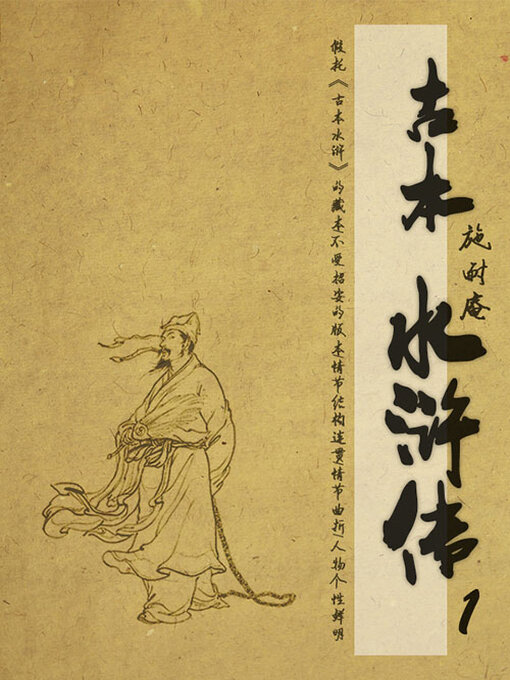 古本 水浒传 1
施耐庵
假托《古本水浒》的藏本不受招安的版本情节结构连贯情节曲折人物个性鲜明